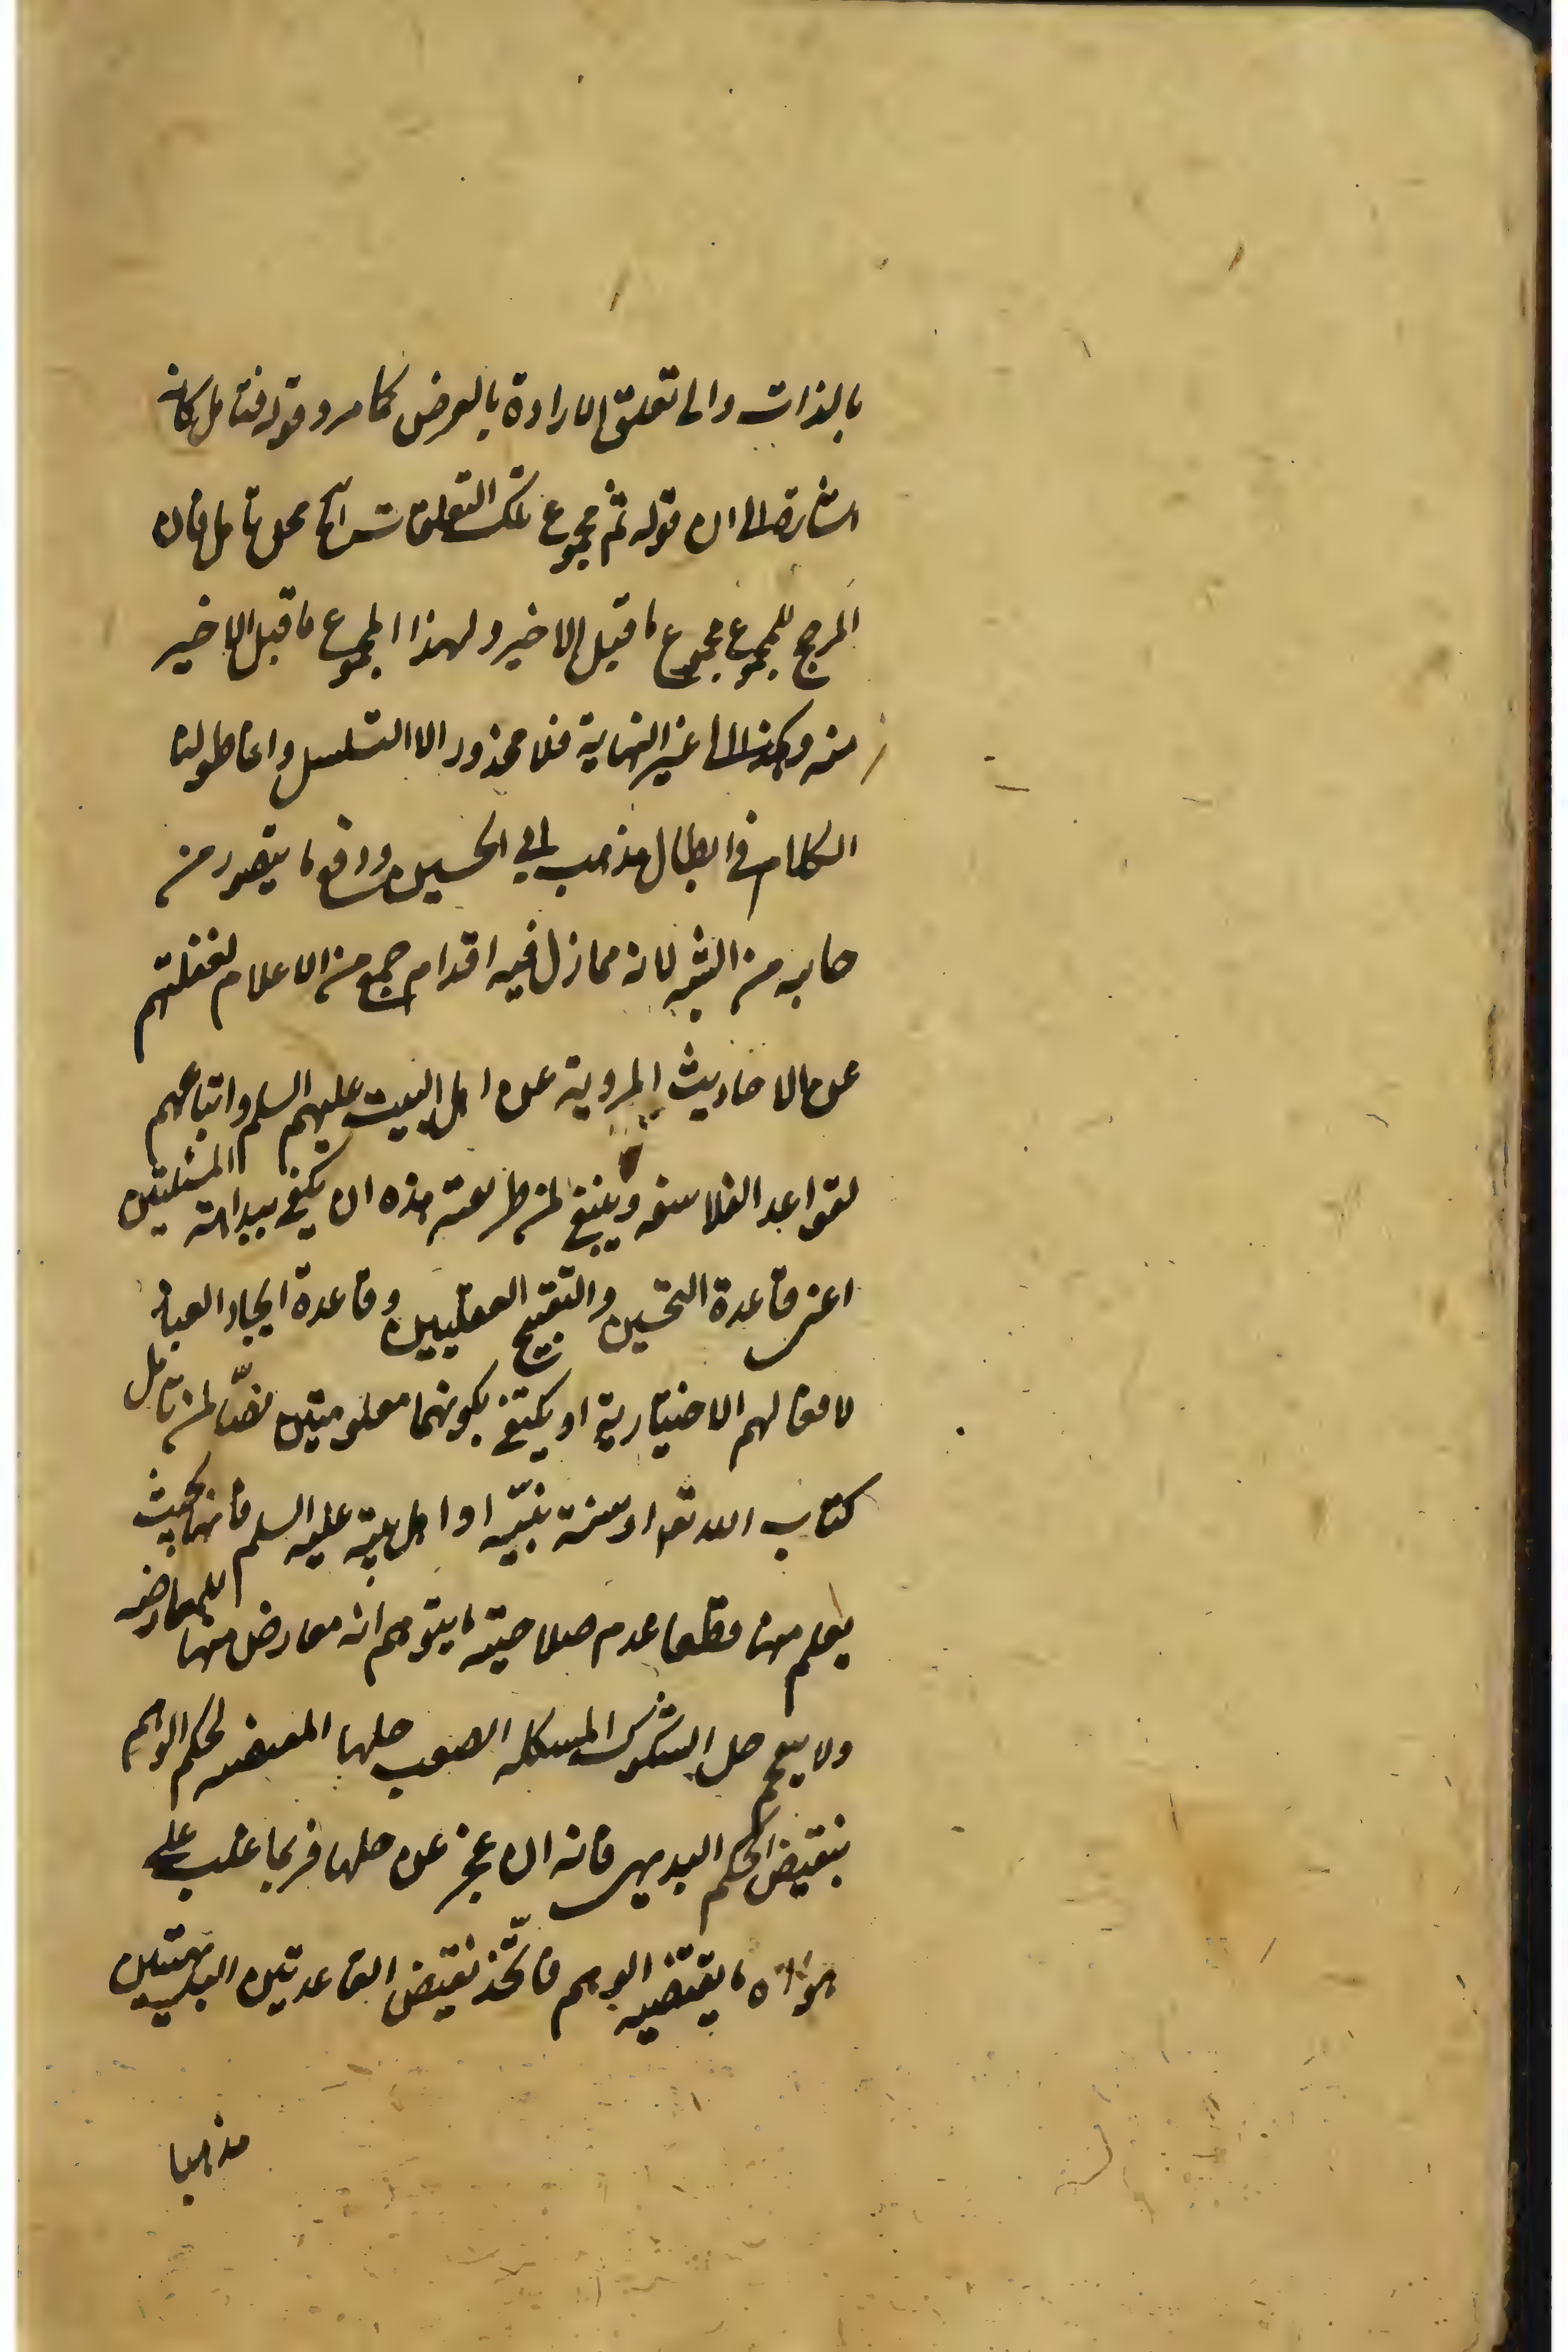 بالذات والى تعلق الارادة بالعرض كما مر وقوله فتامل كانه
اشارة الى ان قوله ثم مجموع تلك التعلقات الخ محل تامل فان
المرجح للمجموع مجموع ما قبل الاخير ولهذا المجموع ما قبل الاخير
منه وهكذا الى غير النهاية فلا محذور الا التسلسل وانما طولنا
الكلام في ابطال مذهب ابي الحسين ودافع ما يتصور من
جانبه من الشبه لانه مما زل فيه اقدام جمع من الاعلام لغفلتهم
عن الاحاديث المروية عن اهل البيت عليهم السلم واتباعهم
لقواعد الفلاسفه وينبغي لمن طريقته هذه ان يكتفي ببداهة المسئلتين
اعني قاعدة التحسين والتقبيح العقليين وقاعدة ايجاد العباد
لافعالهم الاختيارية او يكتفي بكونهما معلومتين نصّا لمن تامل
كتاب الله تعا او سنة نبيّه او اهل بيته عليه السلم فانهما بحيث
يعلم منها قطعا عدم صلاحية ما يتوهم انه معارض منها للمعارضه
ولا يتبع حل الشكوك المشكله الصعب حلها المقتضيه لحكم الوهم
بنقيض الحكم البديهي فانه ان عجز عن حلها فربما غلب على
هواه ما يقتضيه الوهم فاتّخذ نقيض القاعدتين البديهيتين
مذهبا